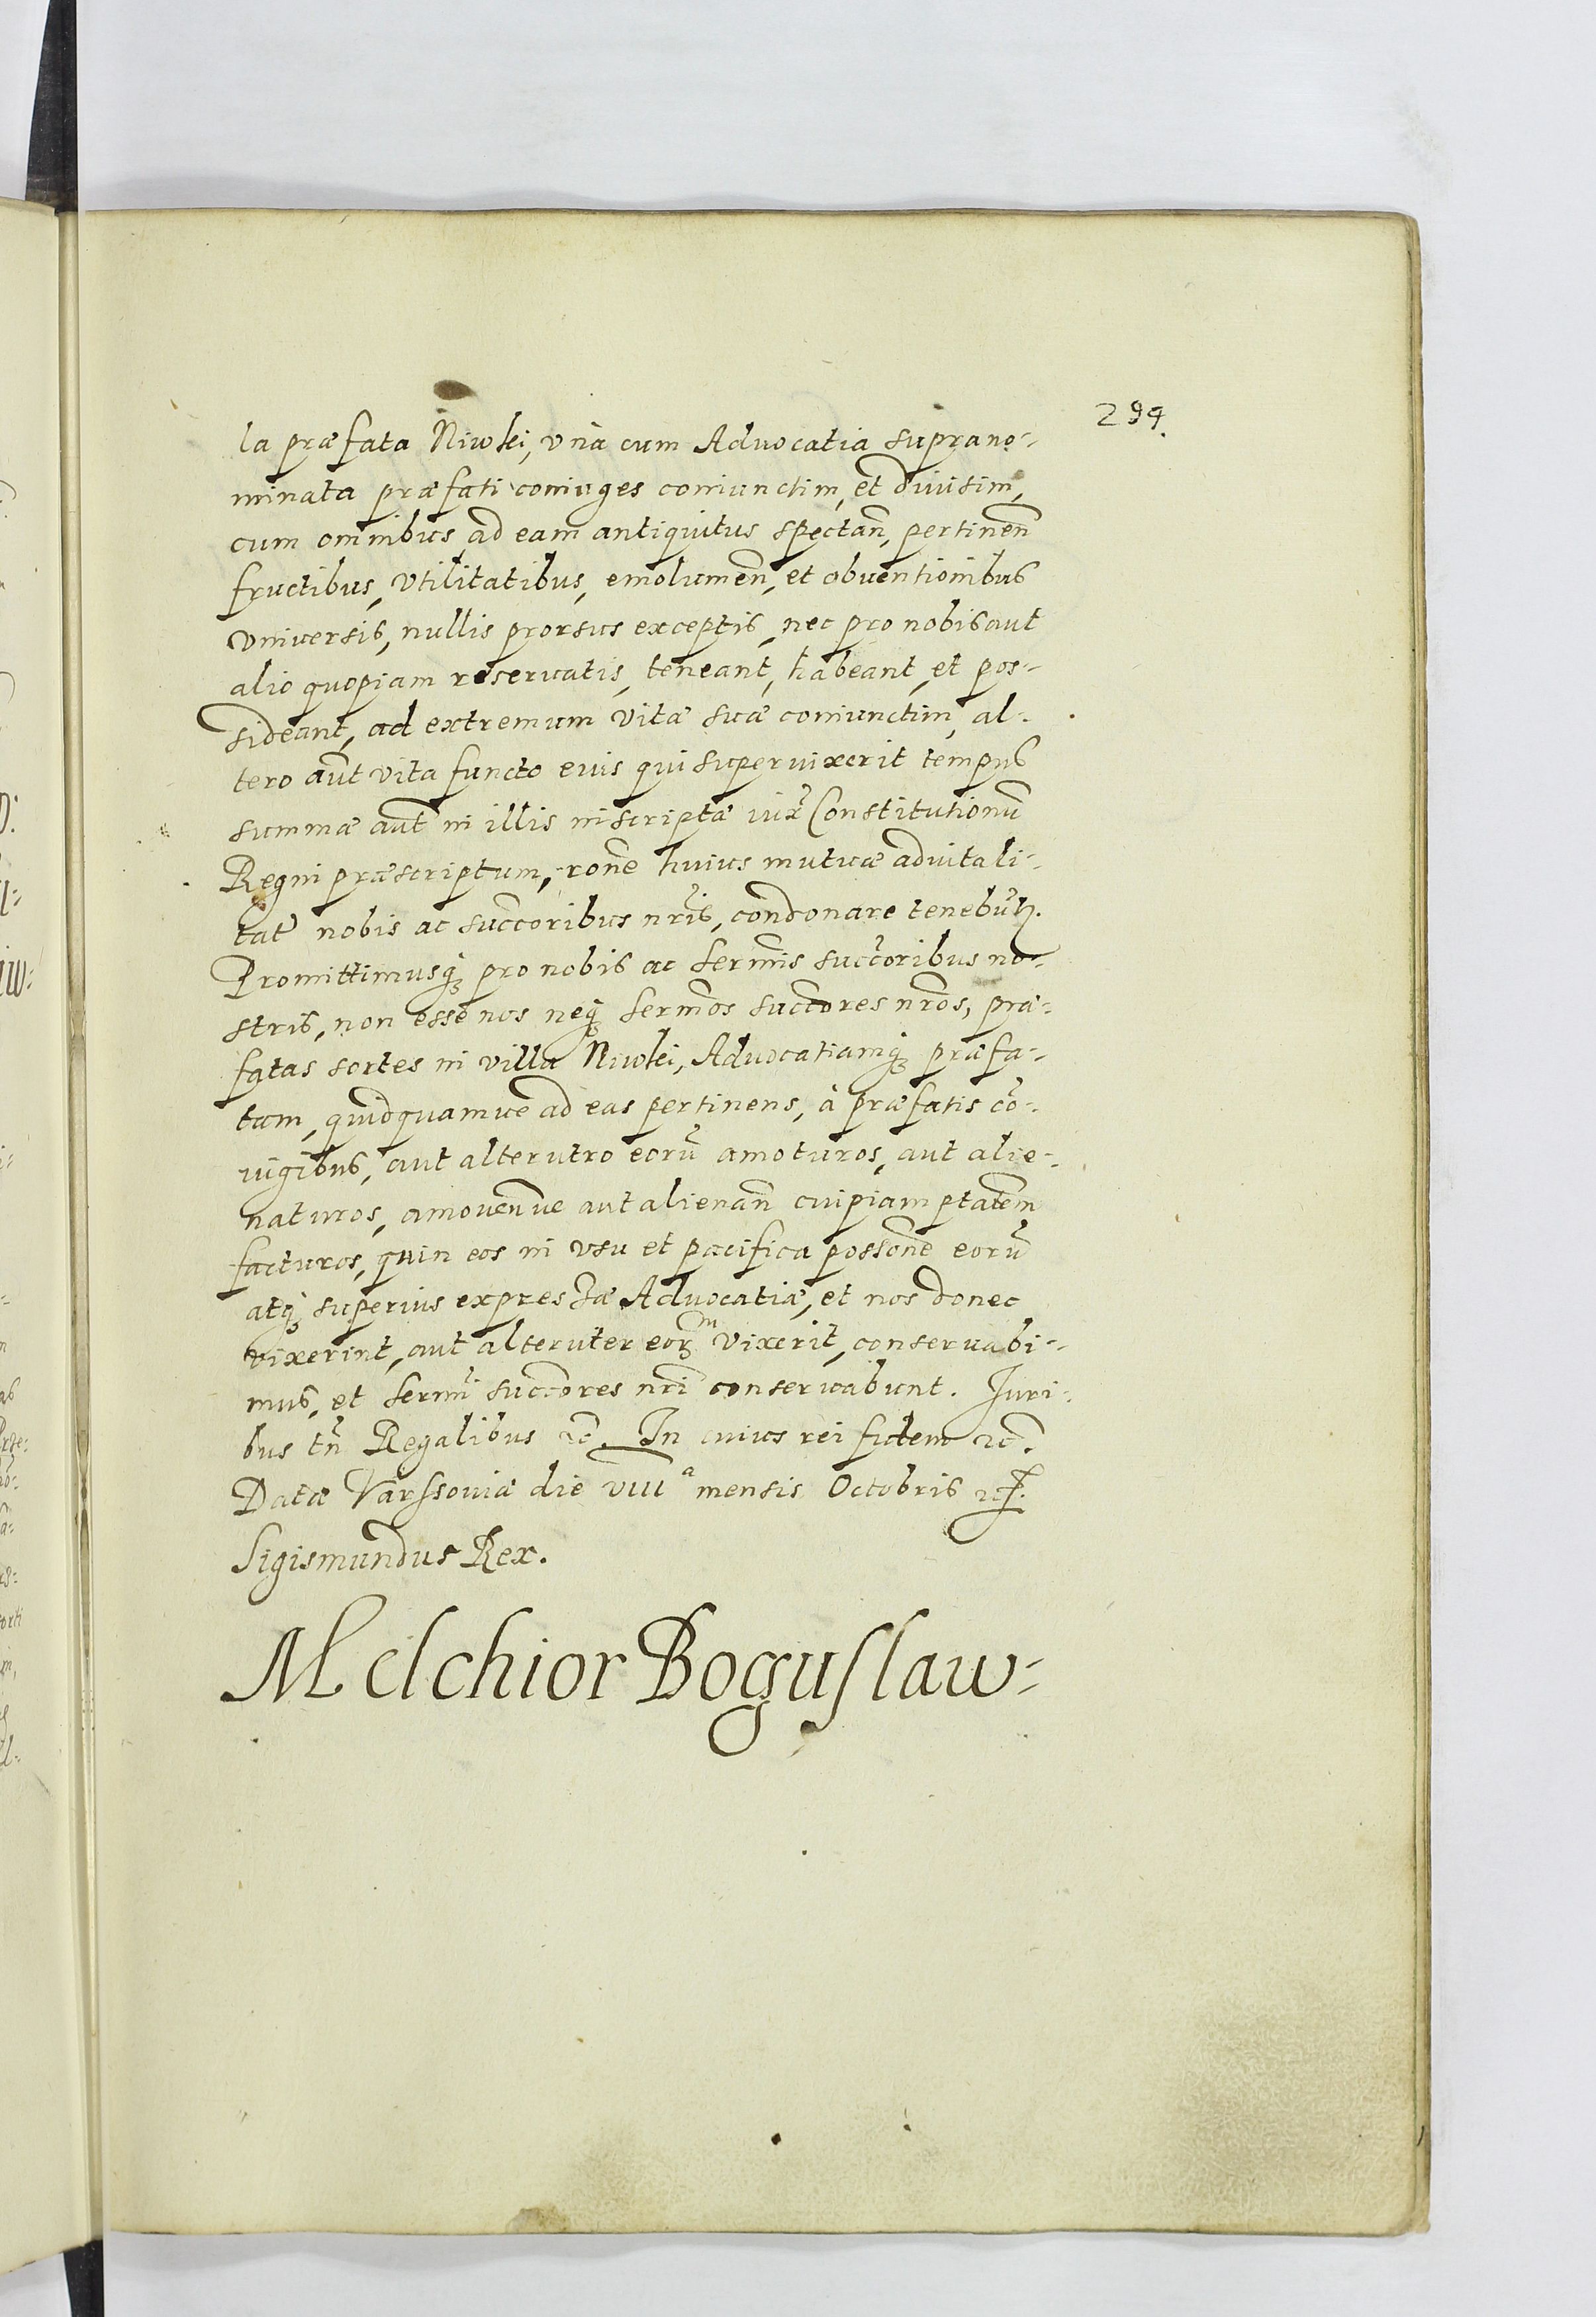 294.
la præfata Niwki, vnà cum Advocatia suprano-
minata præfati coniuges coniunctim, et diuisim,
cum omnibus ad eam antiquitus spectañ, pertineñ
fructibus, vtilitatibus, emolumeñ, et obuentionibus
vniuersis, nullis prorsus exceptis, nec pro nobis aut
alio quopiam reseruatis, teneant, habeant, et pos-
sideant, ad extremum vitæ suæ coniunctim, al-
tero aut̃ vita functo eius qui superuixerit tempus
summæ aut̃ in illis inscriptæ iux̃ Constitutionũ
Regni præscriptum, rõne huius mutuæ aduitali-
tat̃ nobis ac succoribus nr̃is, condonare tenebũtʒ.
Promittimusqʒ pro nobis ac Sermis̃ succoribus no-
stris, non esse nos neqʒ Sermos̃ succores nr̃os, præ-
fatas sortes in villa Niwki, Advocatiamqʒ præfa-
tam, quidquamue ad eas pertinens, à præfatis cõ-
iugibus, aut alterutro eorũ amoturos, aut alie-
naturos, amoueñue aut alienañ cuipiam ptatẽm
facturos, quin eos in vsu et pacifica possõne eorũ
atqʒ superius expressæ Advocatiæ, et nos donec
vixerint, aut alteruter eorʒ^m vixerit, conseruabi-
mus, et Sermĩ succores nr̃i conseruabunt. Iuri-
bus tñ Regalibus ⁊c̃. In cuius rei fidem ⁊c̃.
Datæ Varssouiæ die VIII^a mensis Octobris ⁊c̃.
Sigismundus Rex.
Melchior Boguslaw-